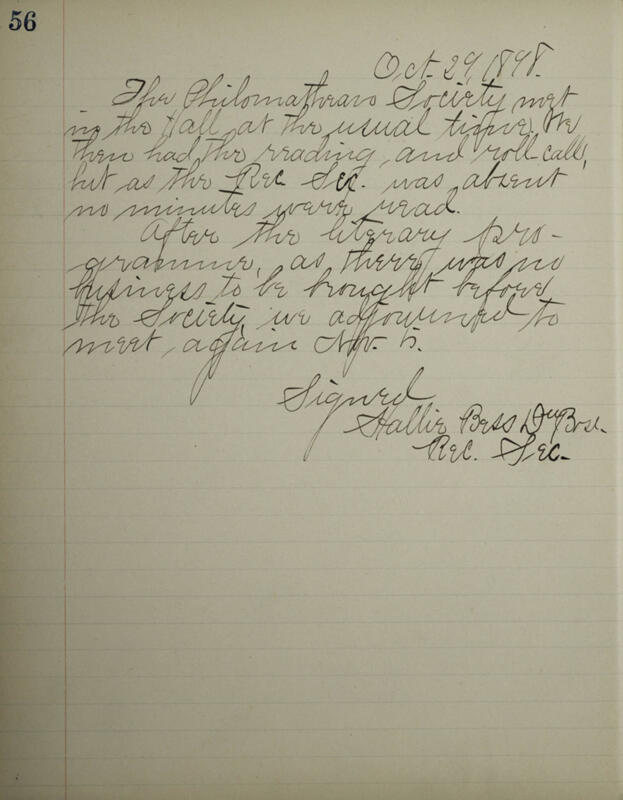 56
Oct. 29, 1898.
The Philomathean Society met
in the Hall at the usual time. We
then had the reading, and roll call,
but as the Rec Sec. was absent
no minutes were read.
After the literary pro-
gramme, as there was no
business to be brought before
the Society, we adjourned to
meet again Nov. 5.
Signed
Hallie Bess DuBose.
Rec. Sec.